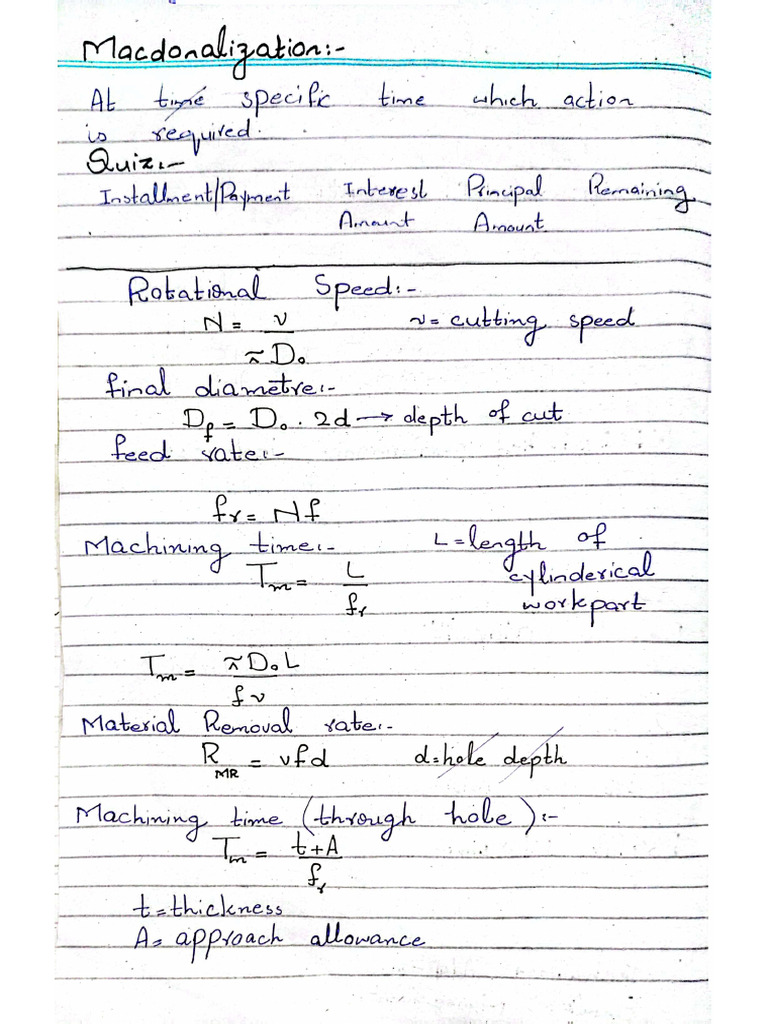 Macdonalization:-
At time specific time which action
is required.
Quiz:-
Installment/Payment Interest Principal Remaining
Amount Amount
Rotational Speed:-
N = v / πD₀ v = cutting speed
final diametre:-
D_f = D₀ . 2d → depth of cut
feed rate:-
f_r = Nf
Machining time:- L = length of
T_m = L / f_r cylinderical
workpart
T_m = πD₀L / fv
Material Removal rate:-
R_MR = vfd d=hole depth
Machining time (through hole):-
T_m = t+A / f_r
t = thickness
A = approach allowance